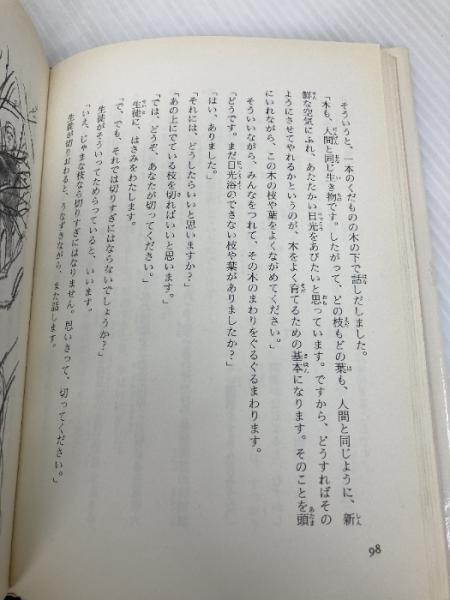 そういうと、一本のくだものの木の下で話しだしました。
「木も、人間と同じ生き物です。したがって、どの枝もどの葉も、人間と同じように、新
鮮な空気にふれ、あたたかい日光をあびたいと思っています。ですから、どうすればその
ようにさせてやれるかというのが、木をよく育てるための基本になります。そのことを頭
にいれながら、この木の枝や葉をよくながめてください。」
そういいながら、みんなをつれて、その木のまわりをぐるぐるまわります。
「どうです。まだ日光浴のできない枝や葉がありましたか?」
「はい、ありました。」
「それには、どうしたらいいと思いますか?」
「あの上にでている枝を切ればいいと思います。」
「では、どうぞ、あなたが切ってください。」
生徒に、はさみをわたします。
「で、でも、それでは切りすぎにはならないでしょうか?」
生徒がそういってためらっていると、いいます。
「いえ、じゃまな枝なら切りすぎにはなりません。思いきって、切ってください。」
生徒が切りおわると、うなずきながら、また話します。
98